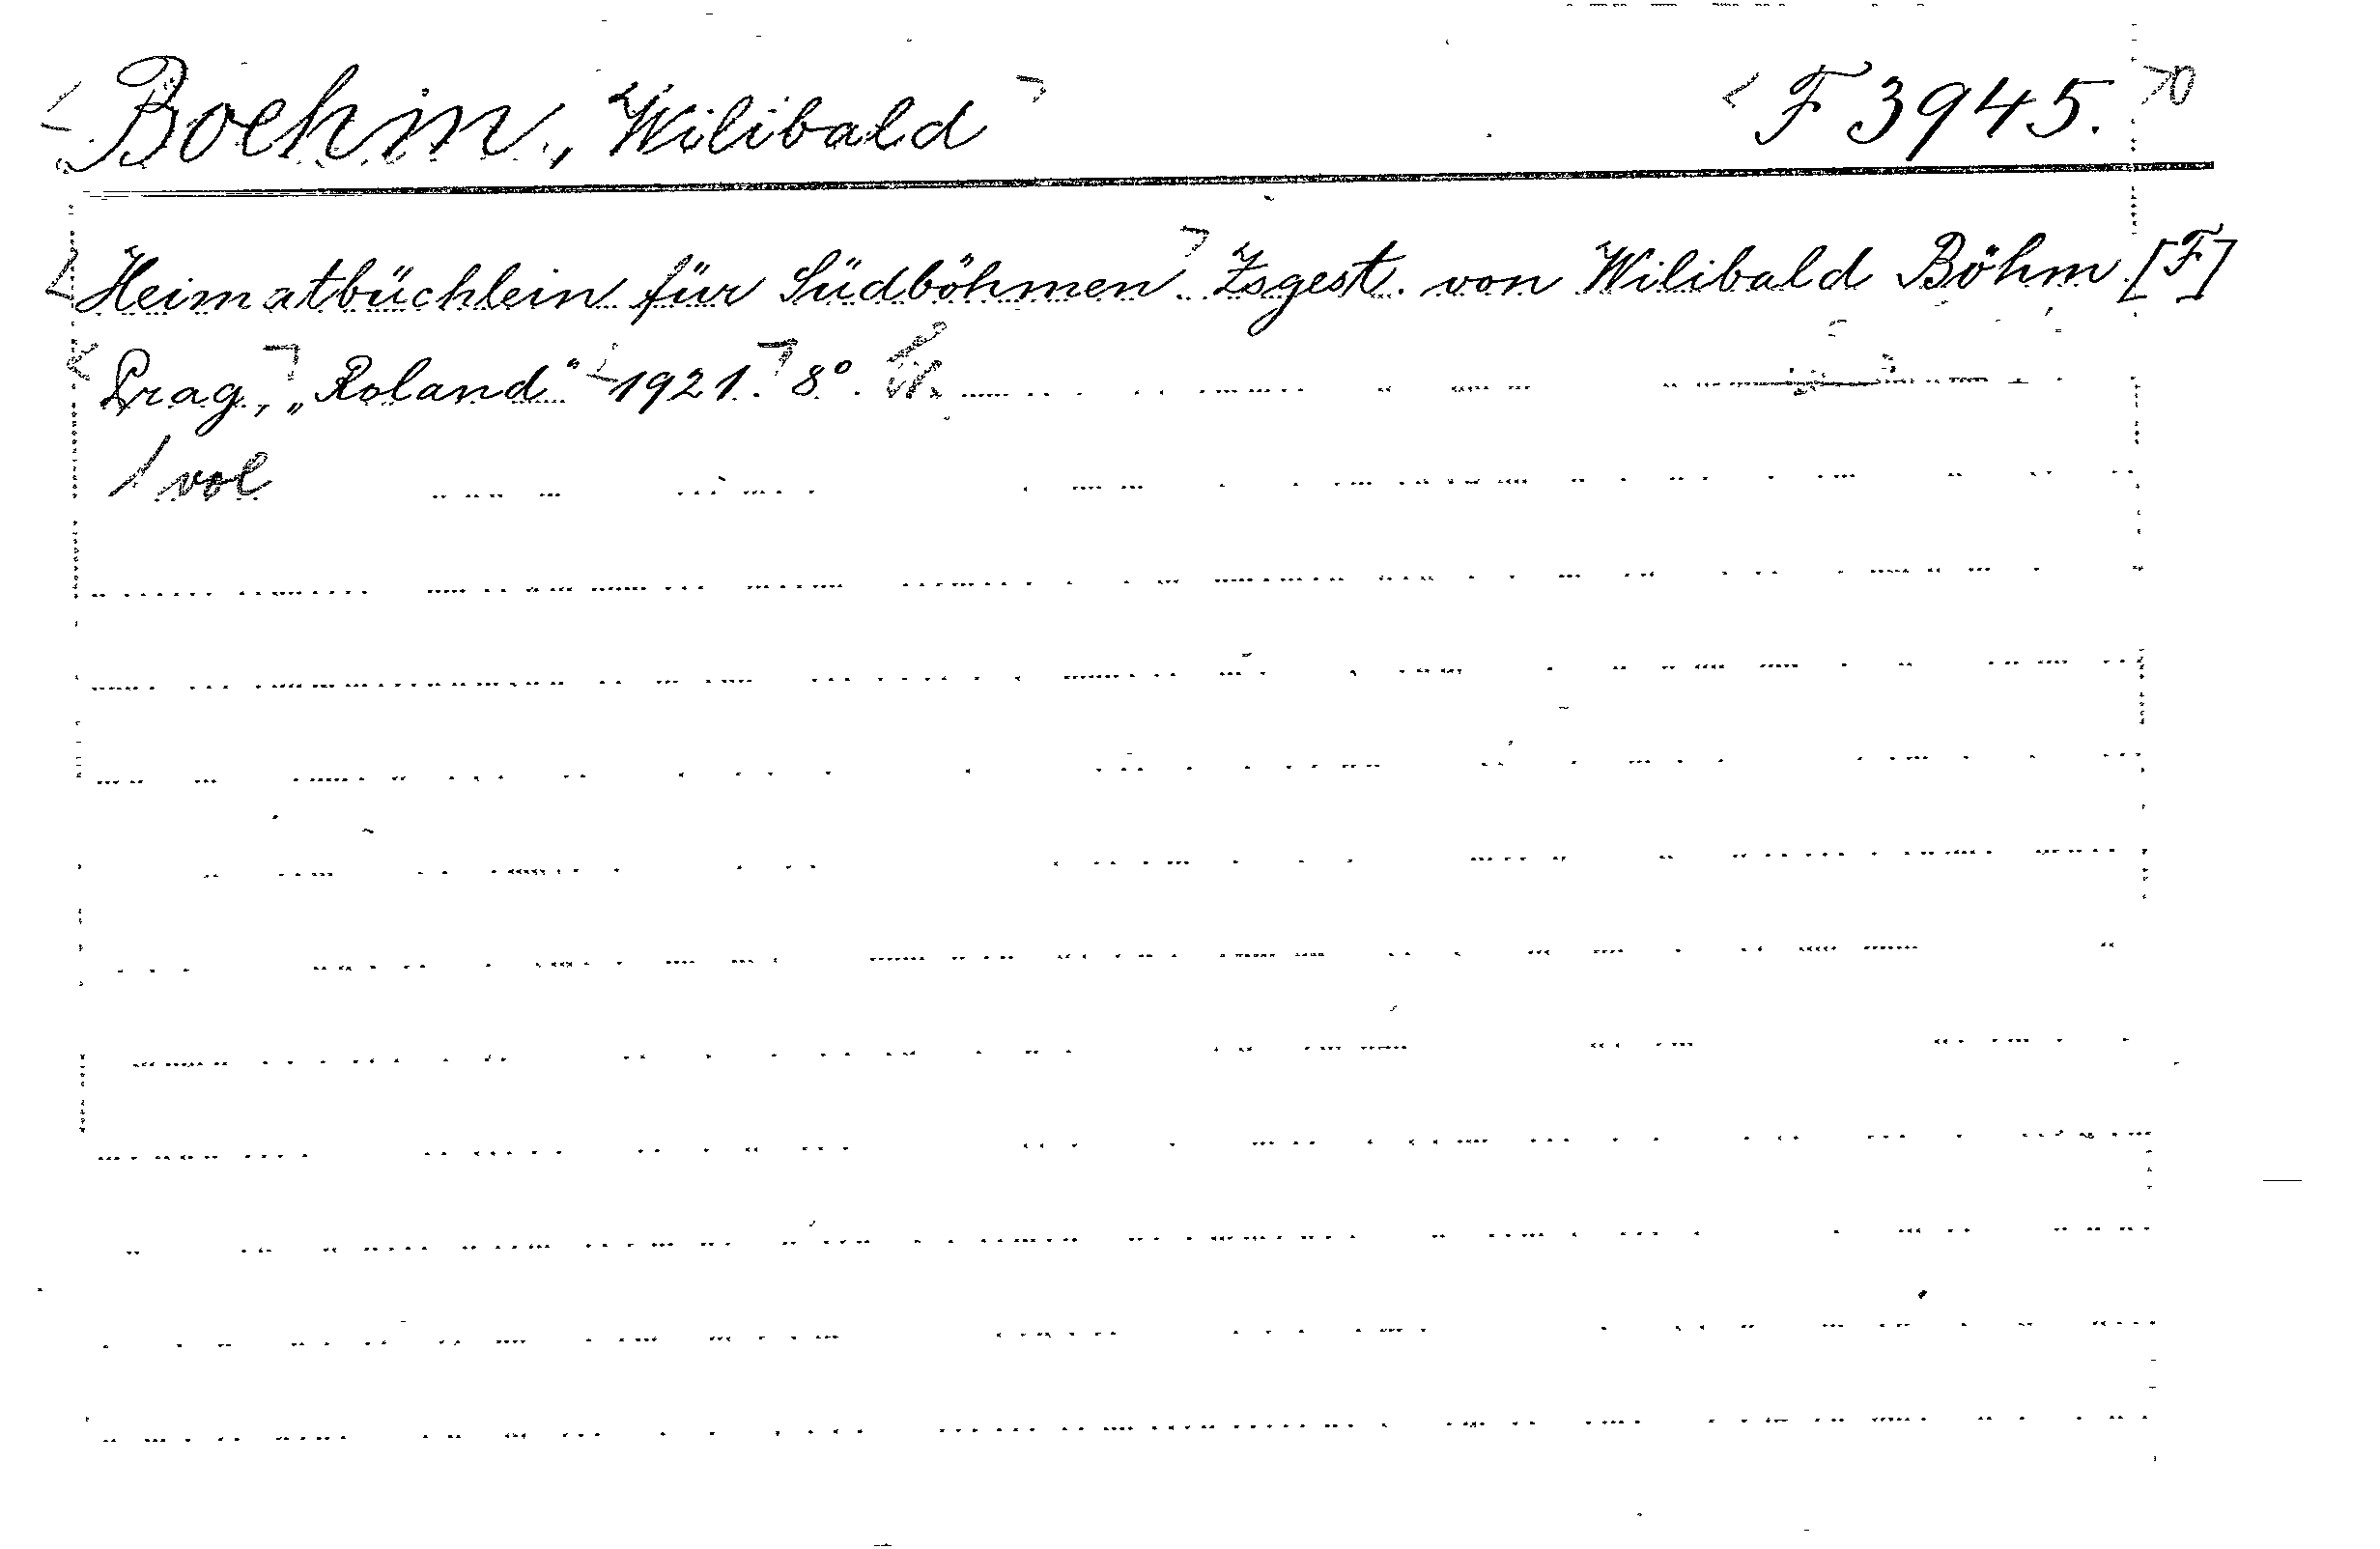 Boehm, Wilibald F 3945.
Heimatbüchlein für Südböhmen. Zsgest. von Wilibald Böhm [F]
Prag, „Roland“ 1921. 8°.
1 vol